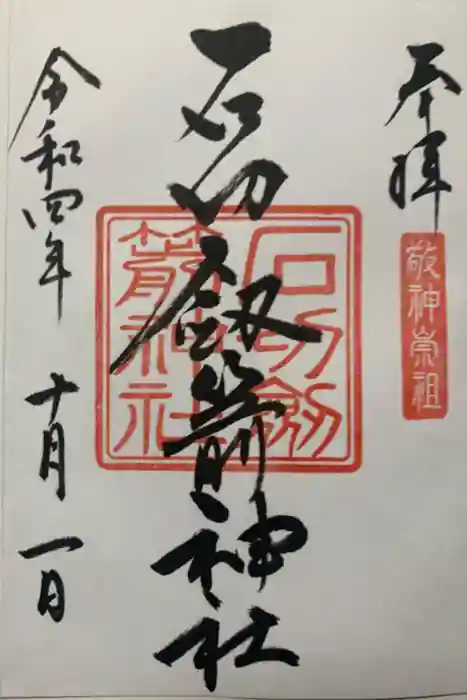 奉拝
敬神崇祖
石切劔箭神社
石切劔
箭神社
令和四年 十月 一日